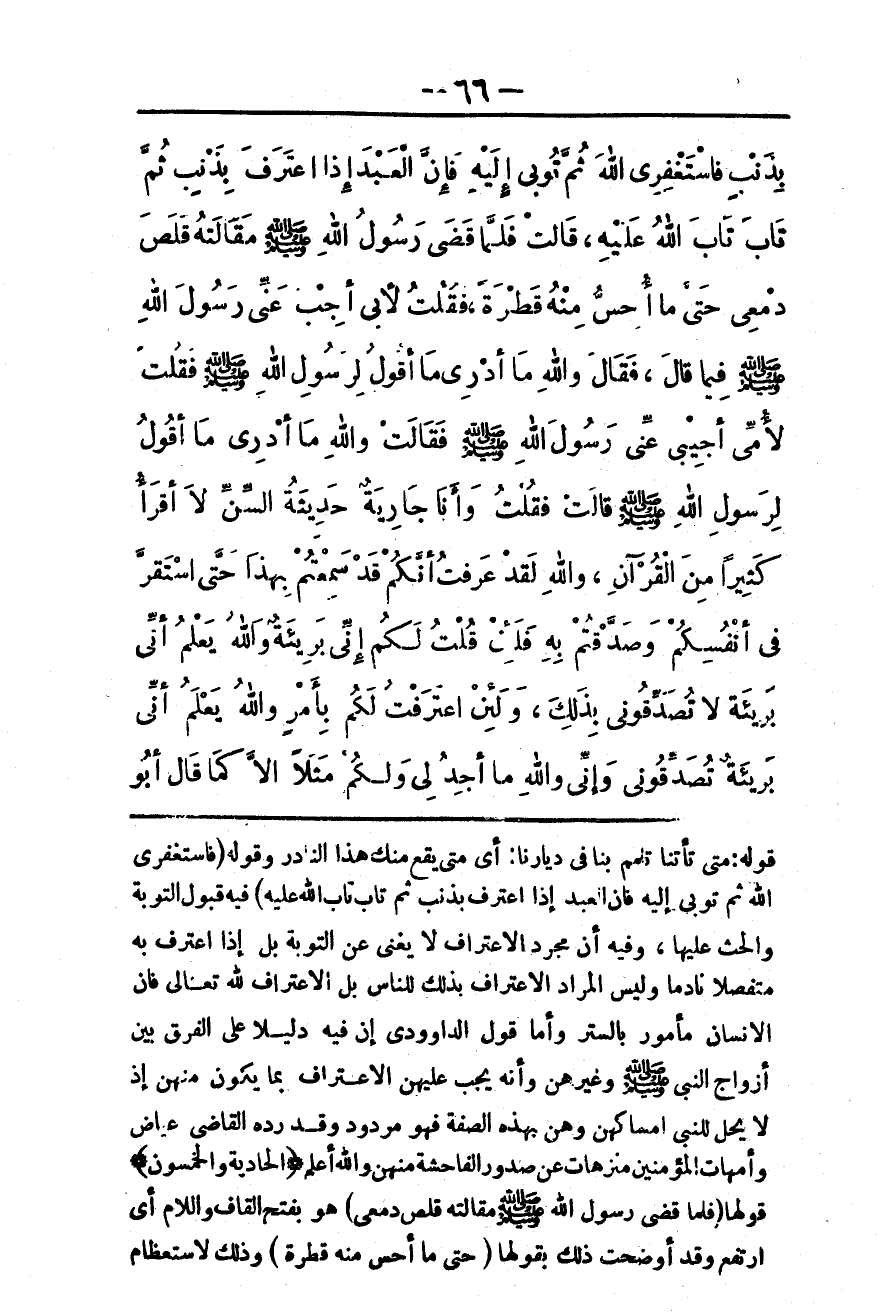 — ٦٦ —
بِذَنْبٍ فاسْتَغْفِرِى اللهَ ثُمَّ تُوبى إِلَيْهِ فَإِنَّ الْعَبْدَ إِذا اعتَرَفَ بِذَنْبٍ ثُمَّ
تَابَ تَابَ اللهُ عَلَيْهِ ، قَالتْ فَلَمَّا قَضَى رَسُولُ اللهِ ﷺ مَقَالَتَهُ قَلَصَ
دمْعِى حَتَى ما أُحسُّ مِنْهُ قَطْرَةً ، فقُلْتُ لأبى أجِبْ عَنِّى رَسُولَ اللهِ
ﷺ فِيما قالَ ، فَقَالَ واللهِ مَا أدْرِى مَا أقولُ لِرَسُولِ اللهِ ﷺ فقُلت
لأُمِّى أجِيْبى عنِّى رَسُولَ اللهِ ﷺ فَقَالَتْ واللهِ مَا أدْرِى مَا أقُولُ
لِرَسولِ اللهِ ﷺ قالَتْ فقُلْتُ وَأَنَا جَارِيَةٌ حَدِيثَةُ السِّنِّ لاَ أقرَأُ
كَثِيرًا مِنَ الْقُرْآنِ ، واللهِ لَقدْ عَرفتُ أنَّكُمْ قَدْ سَمِعْتُمْ بِهذَا حَتَّى اسْتَقرَّ
فى أنْفُسِكُمْ وَصَدَّقْتُمْ بِهِ فَلَئِنْ قُلْتُ لَكُم إِنِّى بَرِيئَةٌ وَاللهُ يَعْلمُ أنِّى
بَرِيئَة لا تُصَدِّقُونى بِذَلِكَ ، وَلَئِنْ اعتَرَفْتُ لَكُم بِأَمْرٍ واللهُ يَعْلَمُ أنِّى
بَرِيئَةٌ تُصَدِّقُونى وَإِنِّى واللهِ ما أجِدُ لِى وَلكُمْ مَثَلاً الاَّ كمَا قَال أبُو
قوله: متى تأتنا تلمم بنا فى ديارنا: أى متى يقع منك هذا النادر وقوله (فاستغفرى
الله ثم توبى إليه فان العبد إذا اعترف بذنب ثم تاب تاب الله عليه) فيه قبول التوبة
والحث عليها ، وفيه أن مجرد الاعتراف لا يغنى عن التوبة بل إذا اعترف به
متفصلا نادما وليس المراد الاعتراف بذلك للناس بل الاعتراف لله تعالى فان
الانسان مأمور بالستر وأما قول الداوودى إن فيه دليلا على الفرق بين
أزواج النبى ﷺ وغيرهن وأنه يجب عليهن الاعتراف بما يكون منهن إذ
لا يحل للنبى امساكهن وهن بهذه الصفة فهو مردود وقد رده القاضى عياض
وأمهات المؤمنين منزهات عن صدور الفاحشة منهن والله أعلم ﴿الحادية والخمسون﴾
قولها (فلما قضى رسول الله ﷺ مقالته قلص دمعى) هو بفتح القاف واللام أى
ارتفع وقد أوضحت ذلك بقولها ( حتى ما أحس منه قطرة ) وذلك لاستعظام